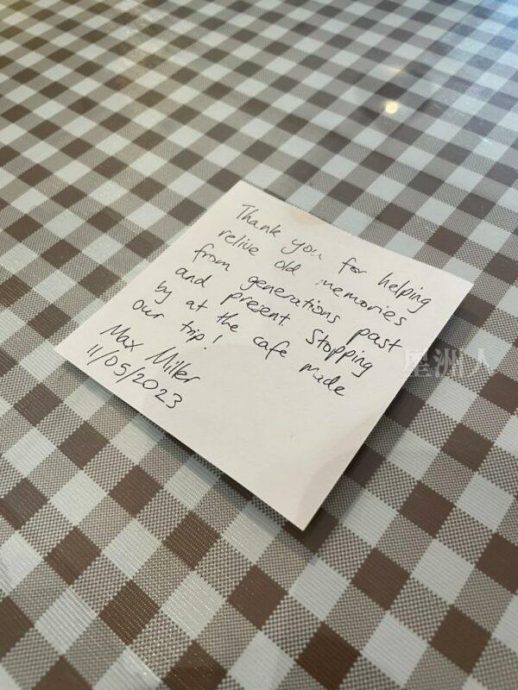 Thank you for helping
relive old memories
from generations past
and present. Stopping
by at the cafe made
our trip!
Max Miller
11/05/2023
星洲人